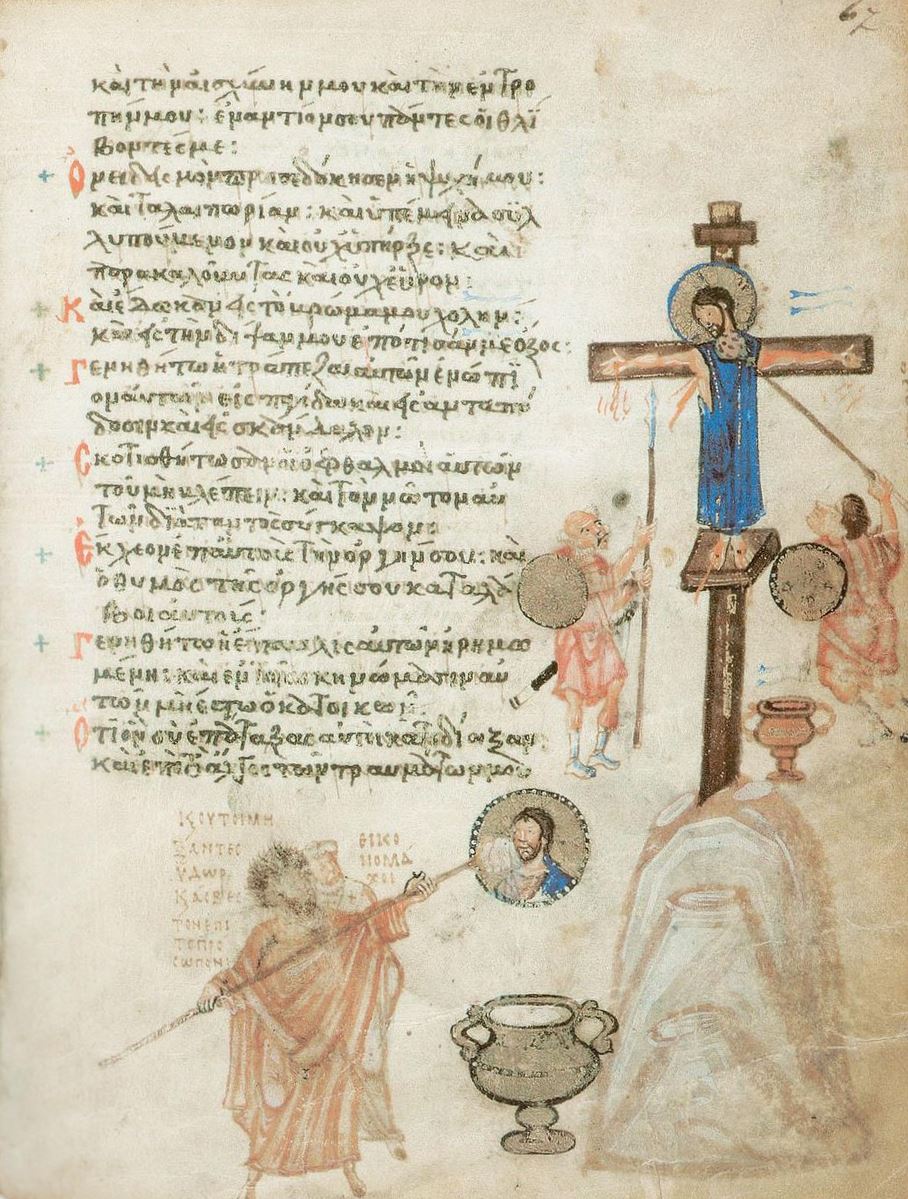 καὶ τὴν αἰσχύνην μου καὶ τὴν ἐντρο
πήν μου: ἐναντίον σου πάντες οἱ θλί
βοντές με:
Ὀνειδισμὸν προσεδόκησεν ἡ ψυχή μου:
καὶ ταλαιπωρίαν: καὶ ὑπέμεινα συλ
λυπούμενον καὶ οὐχ ὑπῆρξε: καὶ
παρακαλοῦντας καὶ οὐχ εὗρον:
Καὶ ἔδωκαν εἰς τὸ βρῶμά μου χολήν:
καὶ εἰς τὴν δίψαν μου ἐπότισάν με ὄξος:
Γενηθήτω ἡ τράπεζα αὐτῶν ἐνώπι
ον αὐτῶν εἰς παγίδα καὶ εἰς ἀνταπό
δοσιν καὶ εἰς σκάνδαλον:
Σκοτισθήτωσαν οἱ ὀφθαλμοὶ αὐτῶν
τοῦ μὴ βλέπειν: καὶ τὸν νῶτον αὐ
τῶν διὰ παντὸς σύγκαμψον:
Ἔκχεον ἐπ' αὐτοὺς τὴν ὀργήν σου: καὶ
ὁ θυμὸς τῆς ὀργῆς σου καταλά
βοι αὐτούς:
Γενηθήτω ἡ ἔπαυλις αὐτῶν ἠρημω
μένη: καὶ ἐν τοῖς σκηνώμασιν αὐ
τῶν μὴ ἔστω ὁ κατοικῶν:
Ὅτι ὃν σὺ ἐπάταξας αὐτοὶ κατεδίωξαν:
καὶ ἐπὶ τὸ ἄλγος τῶν τραυμάτων μου
ΥΔΩΡ
ΤΟΝ ΕΠΙ
ΤΟ ΠΡΟ
ΣΩΠΟΝ
ΕΙΚΟ
ΝΟΜΑ
ΧΟΙ
67